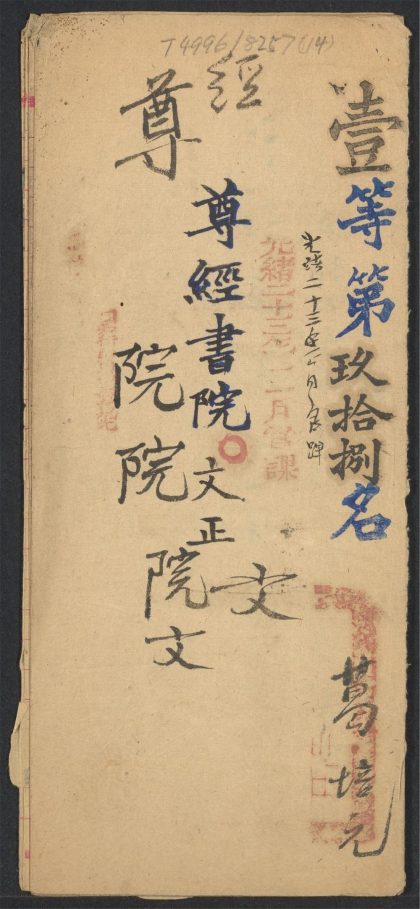 T4996/8257(14)
壹等第玖拾捌名 葛培元
光緒二十三年月官課
光緒二十三年二月官課
經
文
尊經書院 文正
尊
院文
院院